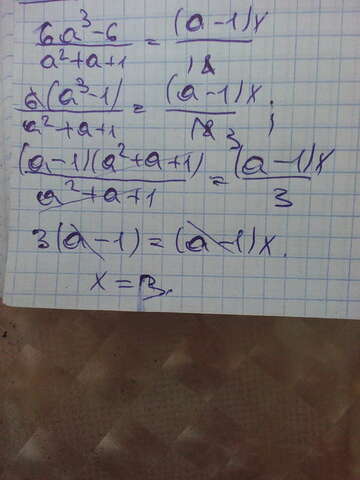 (6a³-6)/(a²+a+1) = ((a-1)x)/18
(6(a³-1))/(a²+a+1) = ((a-1)x)/18 3;
((a-1)(a²+a+1))/(a²+a+1) = ((a-1)x)/3
3(a-1) = (a-1)x.
x = 3.